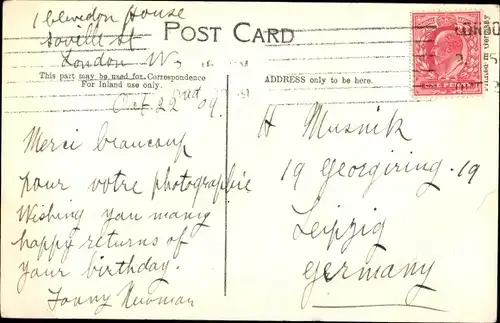 1 Clevedon House
Saville St
London W
POST CARD
This part may be used for Correspondence
For Inland use only.
ADDRESS only to be here.
Oct 22nd 09.
Merci beaucoup
pour votre photographie
Wishing you many
happy returns of
your birthday.
Fanny Newman
H Musnik
19 Georgiring 19
Leipzig
Germany
LONDO
ONE PENNY
Printed in Germany